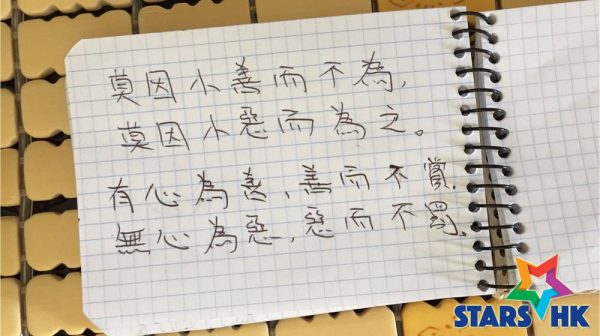 莫因小善而不為,
莫因小惡而為之。
有心為善,善而不賞,
無心為惡,惡而不罰。
STARS HK